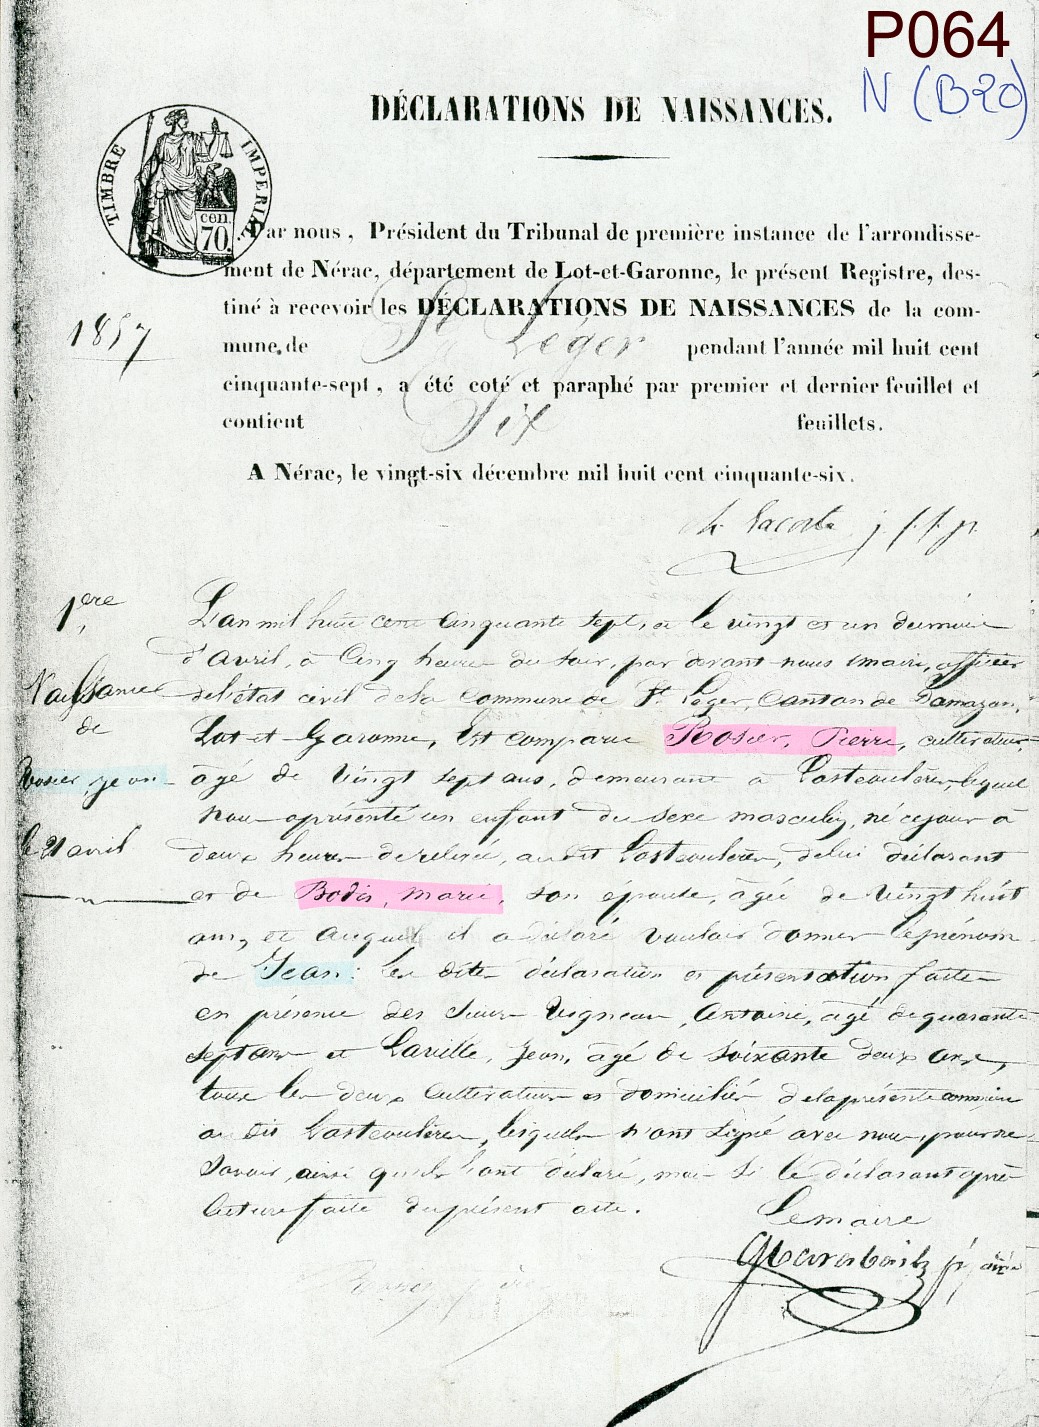 P064
N (B20)
DÉCLARATIONS DE NAISSANCES.
TIMBRE IMPERIAL
cen.
70.
Par nous, Président du Tribunal de première instance de l'arrondisse-
ment de Nérac, département de Lot-et-Garonne, le présent Registre, des-
tiné à recevoir les DÉCLARATIONS DE NAISSANCES de la com-
1857
mune de St Léger pendant l'année mil huit cent
cinquante-sept, a été coté et paraphé par premier et dernier feuillet et
contient Six feuillets.
A Nérac, le vingt-six décembre mil huit cent cinquante-six.
Lacoste j. f. f. p.
1ère
Naissance
de
Rosier, jean
le 21 avril
L'an mil huit cent cinquante sept, et le vingt et un du mois
d'Avril, à Cinq heures du soir, par devant nous maire, officier
de l'état civil de la commune de St Léger, Canton de Damazan,
Lot et Garonne, Est comparu Rosier, Pierre, cultivateur,
âgé de Vingt sept ans, demeurant à Lasteoulères, lequel
nous a présenté un enfant du sexe masculin, né ce jour à
deux heures de relevée, au dit Lasteoulères, de lui déclarant
et de Bodin, Marie, son épouse, âgée de Vingt huit
ans, et auquel il a déclaré vouloir donner le prénom
de Jean: les dites déclaration et présentation faites
en présence des Sieurs Vigneau, Antoine, âgé de quarante
sept ans et Laville, Jean, âgé de soixante deux ans,
tous les deux cultivateurs et domiciliés de la présente commune
au dit Lasteoulères, lesquels n'ont signé avec nous, pour ne
savoir, ainsi qu'ils l'ont déclaré, mais si le déclarant après
lecture faite du présent acte.
Le maire